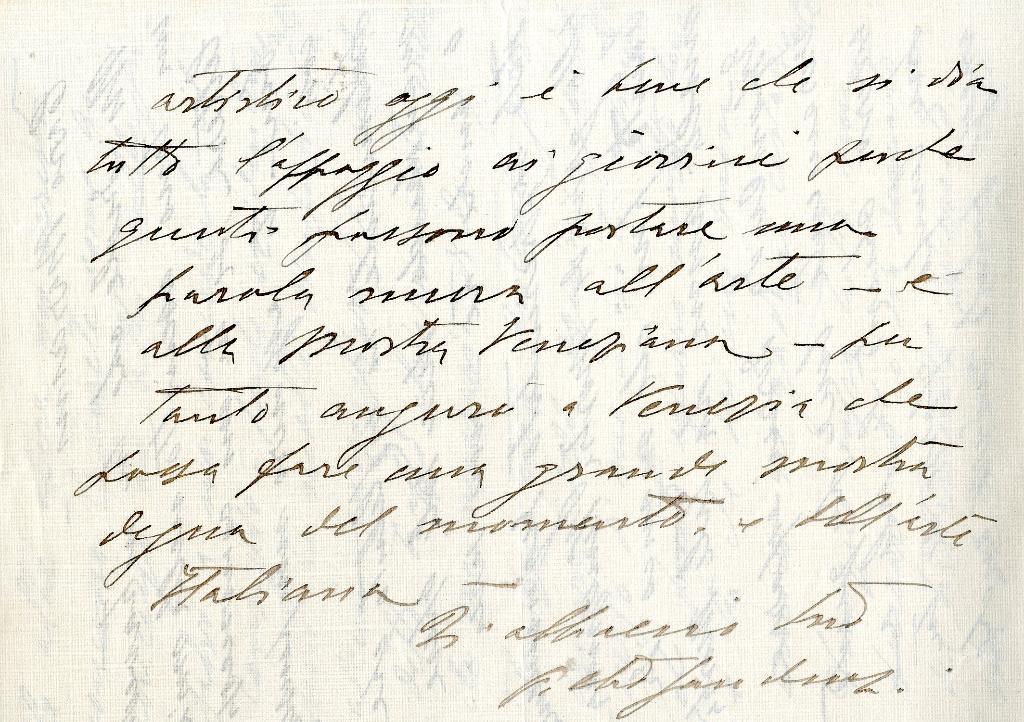 artistico oggi è bene che si dia
tutto l'appoggio ai giovini perche
questi possono portare una
parola nuova all'arte — e
alla Mostra Veneziana — per
tanto auguro a Venezia che
possa fare una grande mostra
degna del momento. e dell'arte
Italiana —
Ti abbraccio tuo